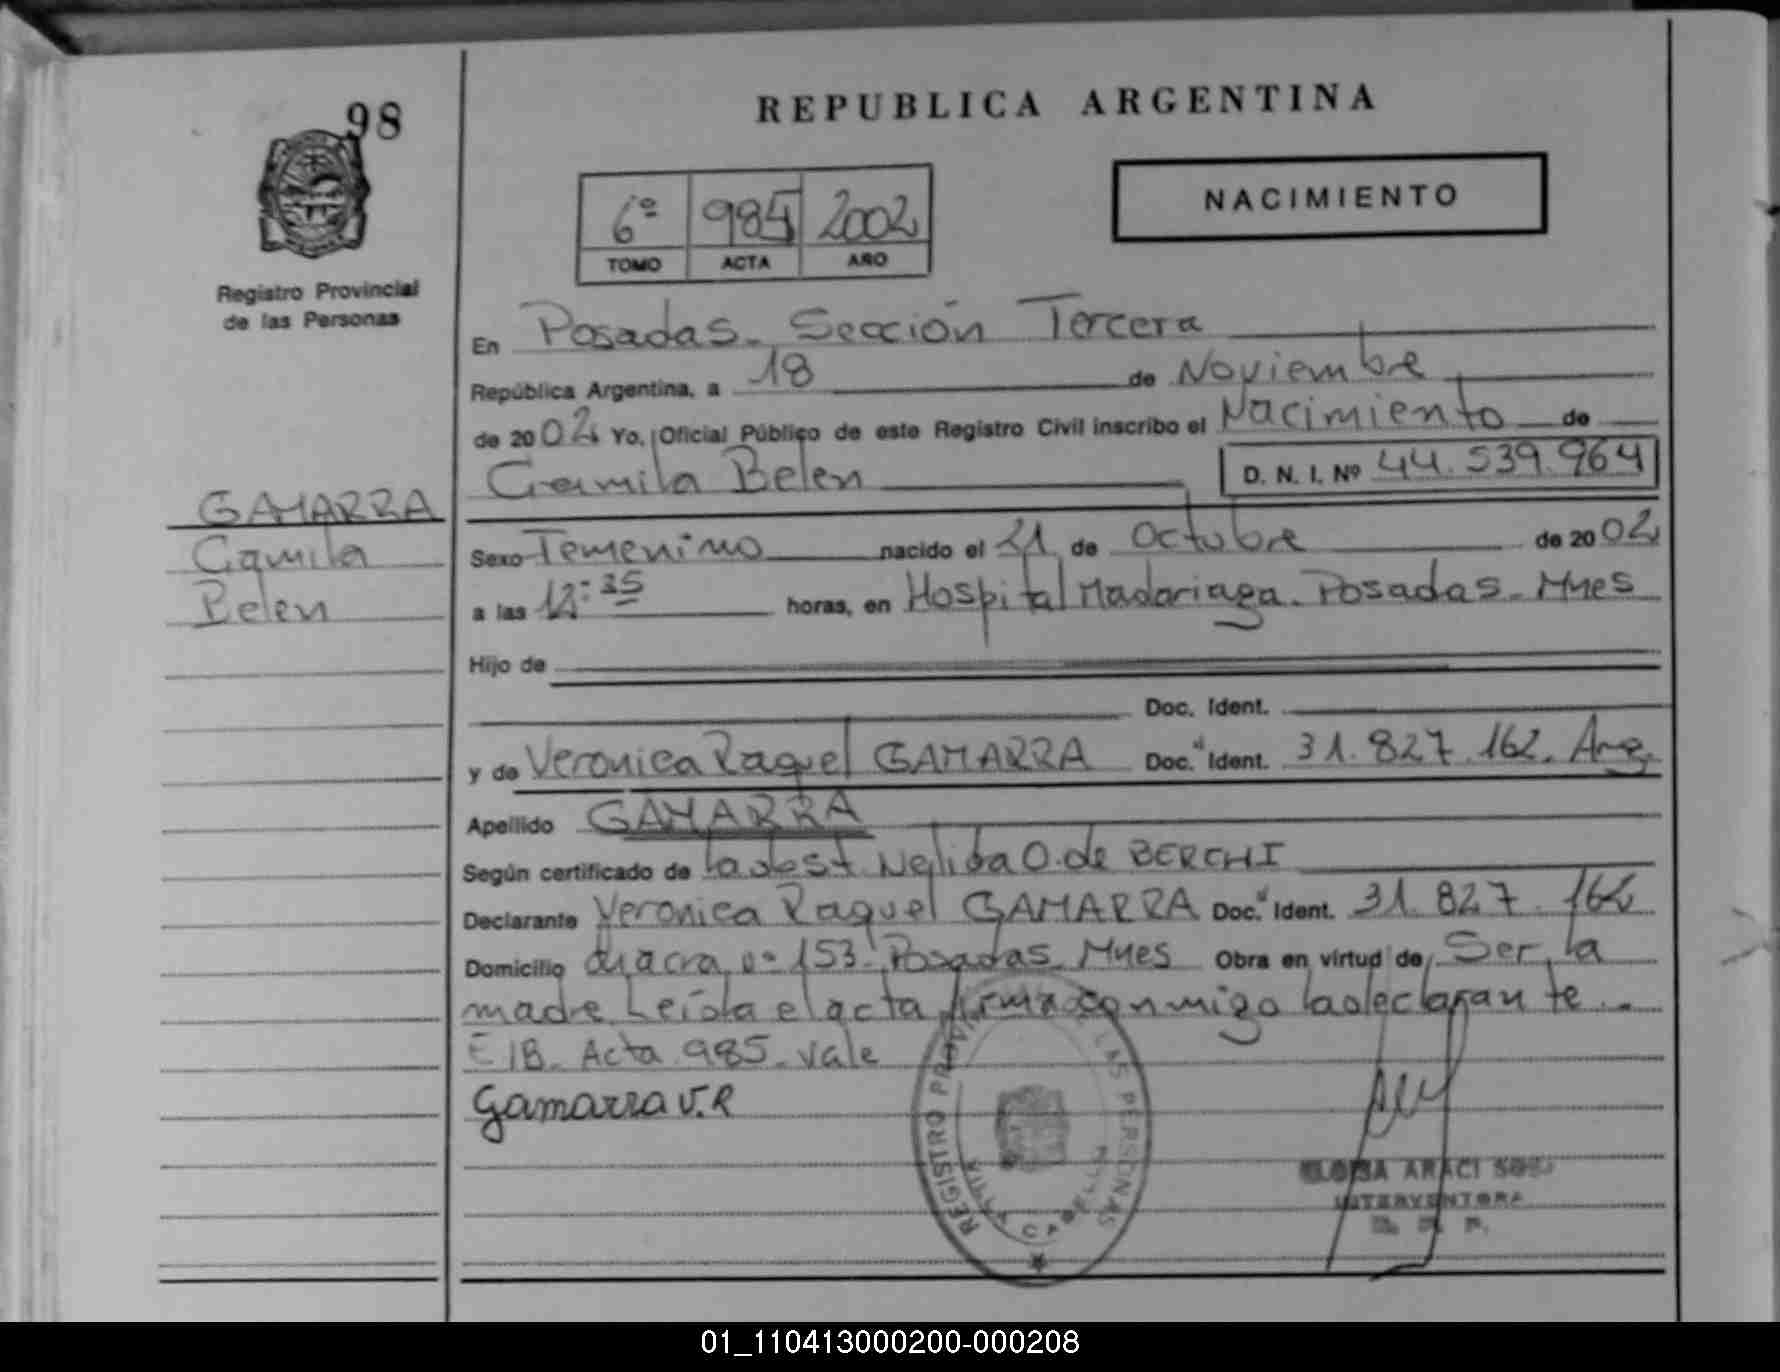 98
REPUBLICA ARGENTINA
NACIMIENTO
6º 985 2002
TOMO ACTA AÑO
Registro Provincial
de las Personas
En Posadas - Sección Tercera
República Argentina, a 18 de Noviembre
de 2002 Yo, Oficial Público de este Registro Civil inscribo el Nacimiento de
Camila Belen D. N. I. Nº 44.539.964
GAMARRA
Camila
Belen
Sexo Femenino nacido el 21 de Octubre de 2002
a las 12:35 horas, en Hospital Madariaga. Posadas - Mnes
Hijo de
Doc. Ident.
y de Veronica Raquel GAMARRA Doc. Ident. 31.827.162. Arg.
Apellido GAMARRA
Según certificado de la obst. Nelida O. de BERCHI
Declarante Veronica Raquel GAMARRA Doc. Ident. 31.827.162
Domicilio chacra nº 153 - Posadas - Mnes Obra en virtud de Ser la
madre Leída el acta firma conmigo la declarante --
E/B - Acta 985 - vale
Gamarra V.R
REGISTRO PROVINCIAL DE LAS PERSONAS
ARACI
INTERVENTORA
01_110413000200-000208